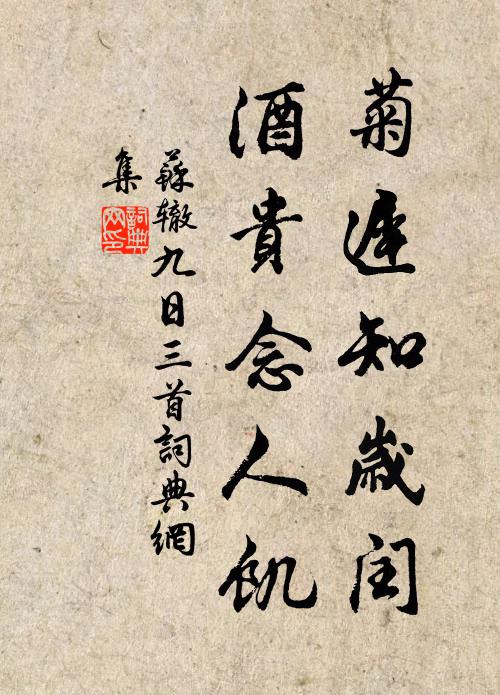 菊遲知歲閏
酒貴念人飢
蘇辙九日三首詞典網
集
詞典网印